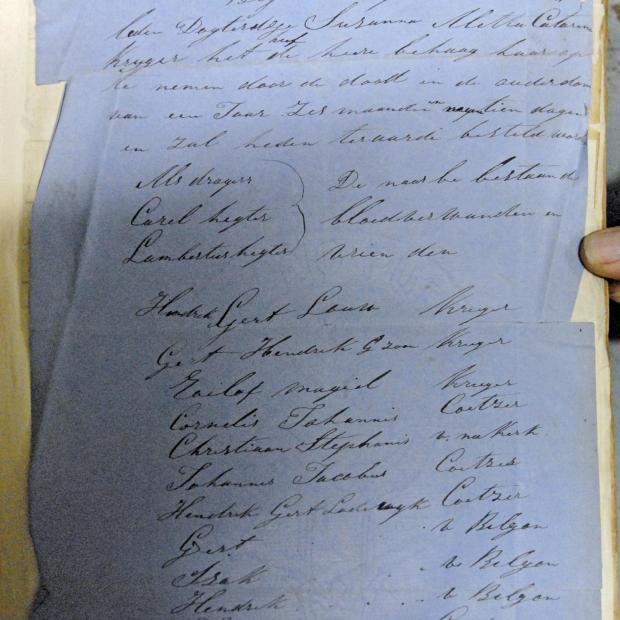 leden Dogterdje Suzanna Aletta Catarin
Kruger het de heere behaag haar op
te nemen door de dood in de ouderdom
van een Jaar Zes maanden en tien dagen
en zal heden teraarde besteld word
Als dragers
De naarbe bestaande
Carel hegter
bloedverwanden en
Lambertus hegter
vrien den
Hendrik Gert Louw Kruger
Gert Hendrik G zoon Kruger
Roilof magiel Kruger
Cornelis Johannis Coetzer
Christiaan Stephanis v. na Kerk
Johannes Jacobus Coetzer
Hendrik Gert Lodewyk Coetzer
Gert v Belgan
Izak v. Belgan
Hendrik v Belgan